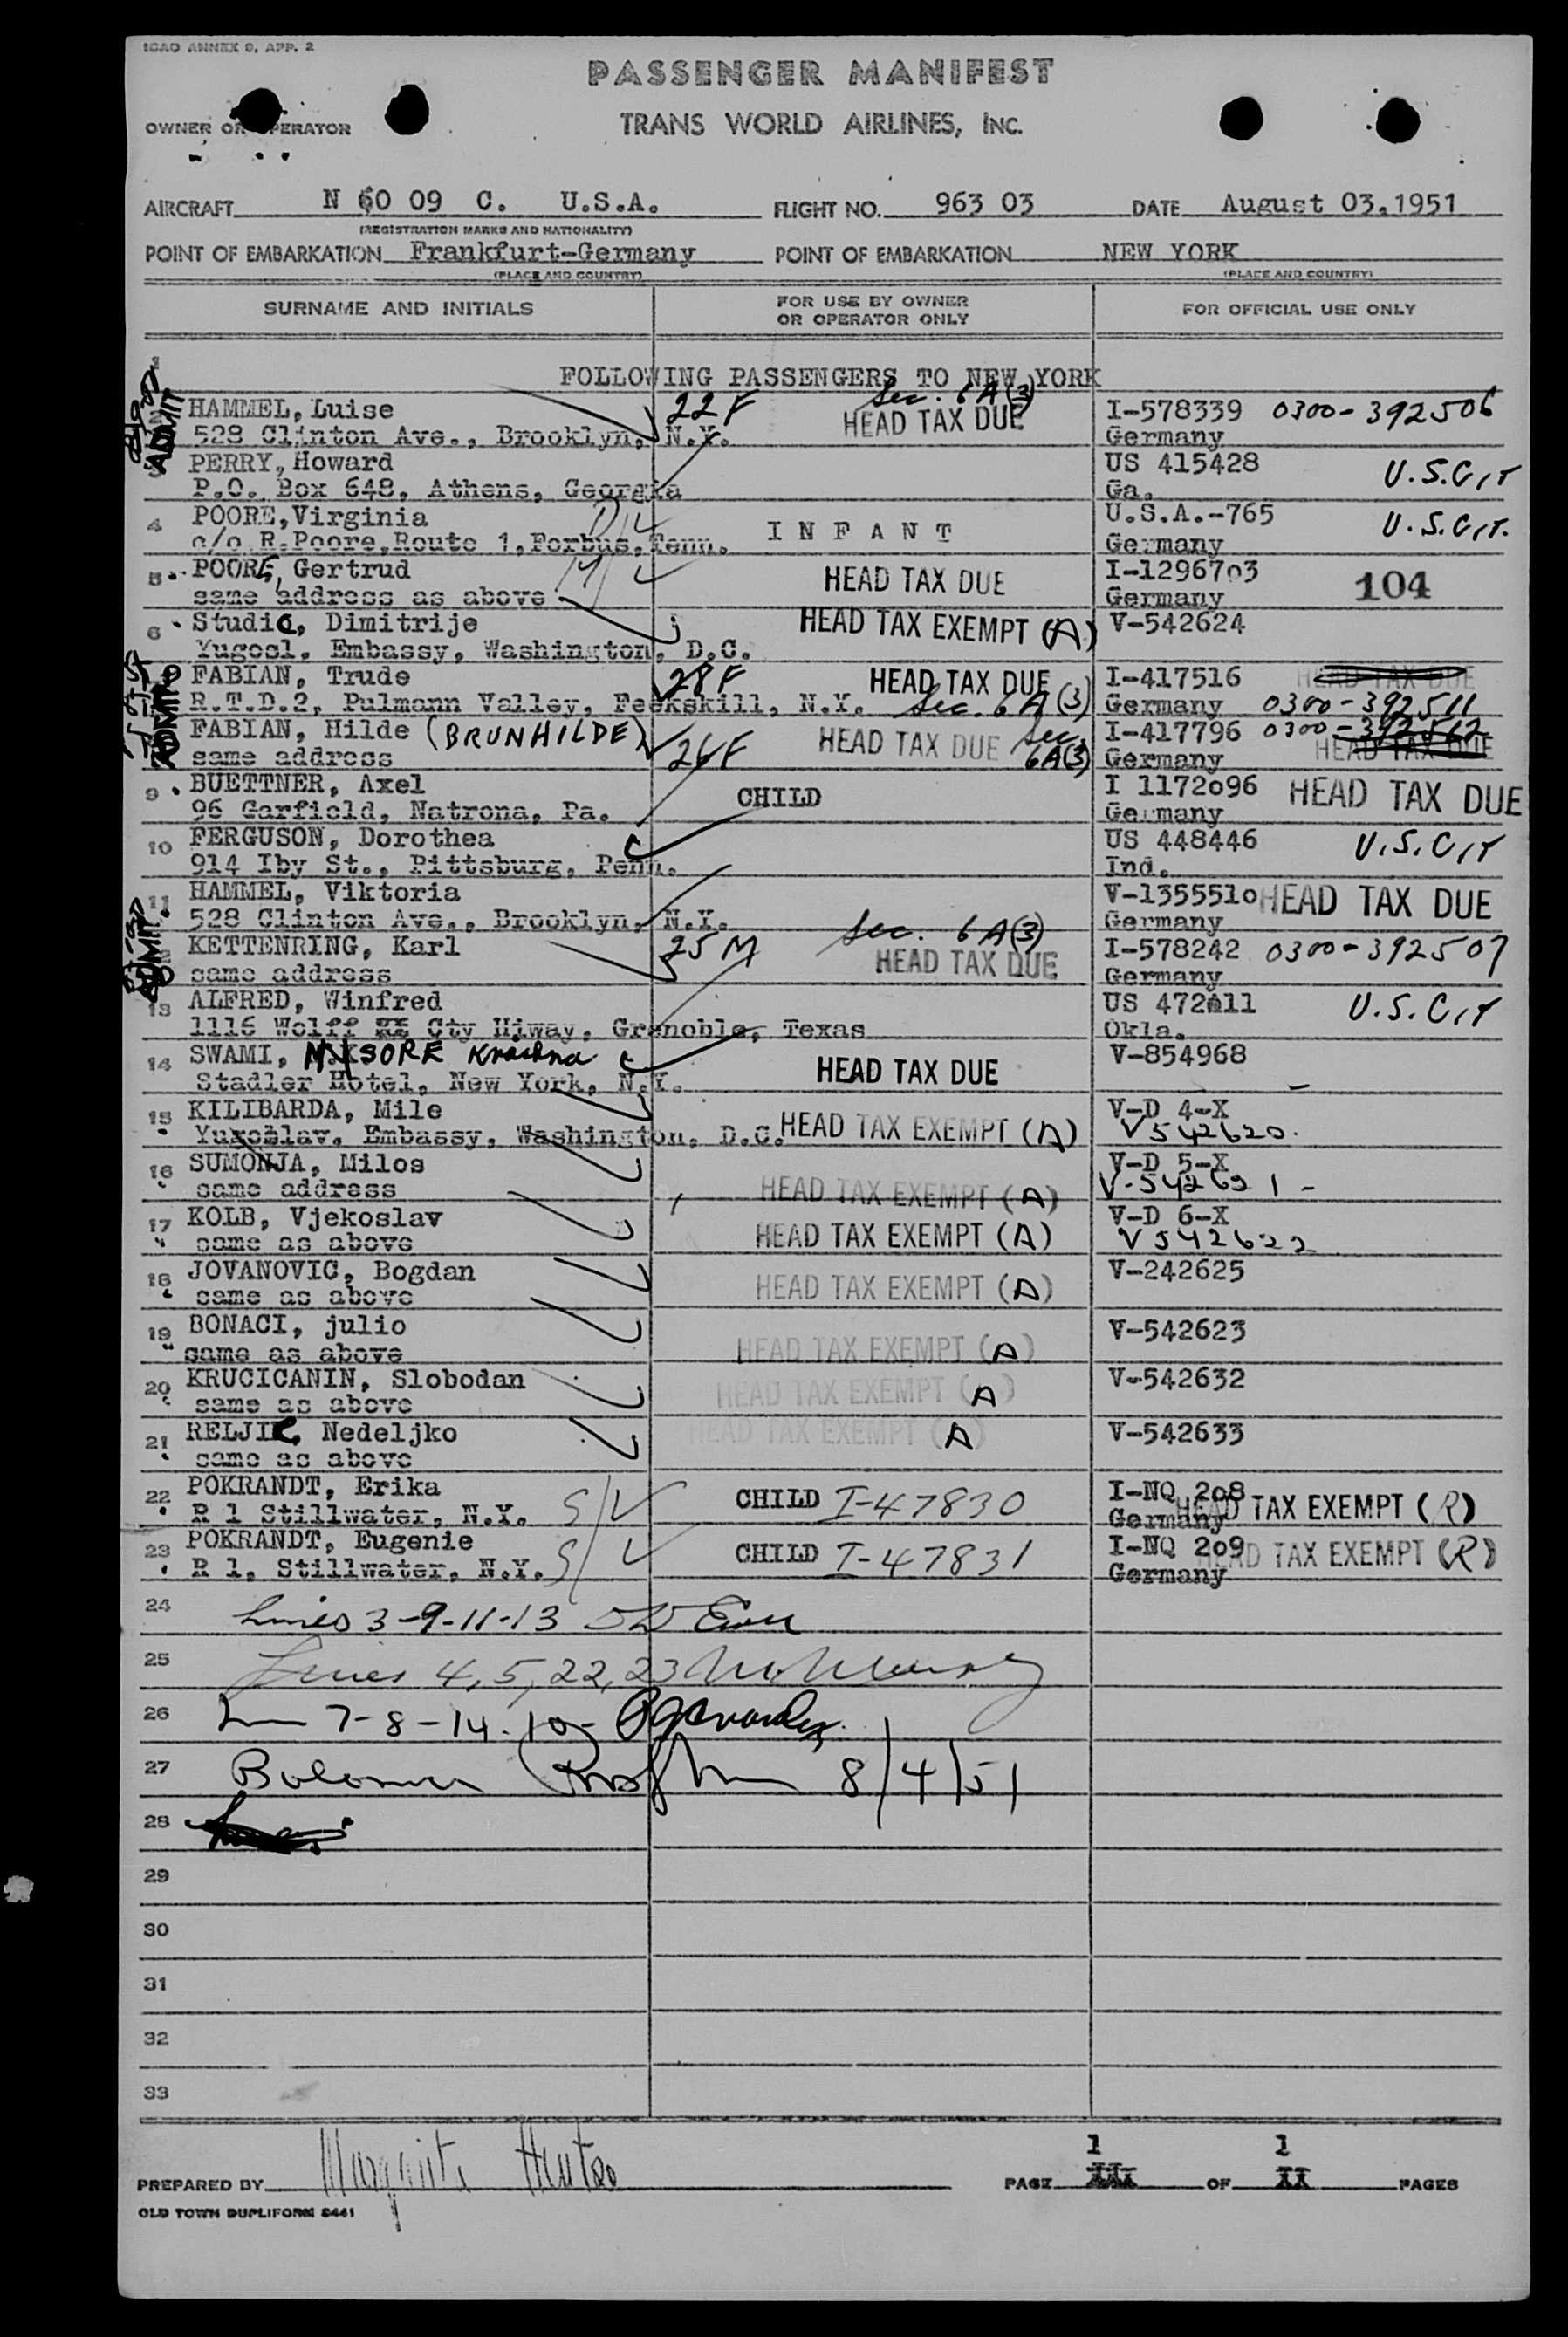 ICAO ANNEX 9, APP. 2
PASSENGER MANIFEST
OWNER OR OPERATOR
TRANS WORLD AIRLINES, INC.
AIRCRAFT N 60 09 C. U.S.A. FLIGHT NO. 963 03 DATE August 03.1951
(REGISTRATION MARKS AND NATIONALITY)
POINT OF EMBARKATION Frankfurt-Germany POINT OF EMBARKATION NEW YORK
(PLACE AND COUNTRY) (PLACE AND COUNTRY)
SURNAME AND INITIALS FOR USE BY OWNER OR OPERATOR ONLY FOR OFFICIAL USE ONLY
1
FOLLOWING PASSENGERS TO NEW YORK
ADMIT
HAMMEL, Luise 22 F Sec. 6A(3) HEAD TAX DUE I-578339 0300-392506
528 Clinton Ave., Brooklyn, N.Y. Germany
PERRY, Howard US 415428 U.S.CIT
P.O. Box 648, Athens, Georgia Ga.
4 POORE, Virginia I N F A N T U.S.A.-765 U.S.CIT.
c/o R.Poore,Route 1,Forbus,Tenn. Germany
5 POORE, Gertrud HEAD TAX DUE I-1296703 104
same address as above Germany
6 Studic, Dimitrije HEAD TAX EXEMPT (A) V-542624
Yugosl. Embassy, Washington, D.C.
ADMIT
FABIAN, Trude 28 F HEAD TAX DUE I-417516 HEAD TAX DUE
R.T.D.2, Pulmann Valley, Peekskill, N.Y. Sec. 6A(3) Germany 0300-392511
FABIAN, Hilde (BRUNHILDE) 26 F HEAD TAX DUE Sec. 6A(3) I-417796 0300-392512
same address Germany HEAD TAX DUE
9 BUETTNER, Axel CHILD I 1172096 HEAD TAX DUE
96 Garfield, Natrona, Pa. Germany
10 FERGUSON, Dorothea US 448446 U.S.CIT
914 Iby St., Pittsburg, Penn. Ind.
11 HAMMEL, Viktoria V-1355510 HEAD TAX DUE
528 Clinton Ave., Brooklyn, N.Y. Germany
ADMIT
KETTENRING, Karl 25 M Sec. 6A(3) HEAD TAX DUE I-578242 0300-392507
same address Germany
13 ALFRED, Winfred US 472 11 U.S.CIT
1116 Wolff Cty Hiway, Grenoble, Texas Okla.
14 SWAMI, MYSORE Krishna HEAD TAX DUE V-854968
Stadler Hotel, New York, N.Y.
15 KILIBARDA, Mile HEAD TAX EXEMPT (A) V-D 4-X
Yugoslav. Embassy, Washington, D.C. V542620.
16 SUMONJA, Milos HEAD TAX EXEMPT (A) V-D 5-X
same address V-542621-
17 KOLB, Vjekoslav HEAD TAX EXEMPT (A) V-D 6-X
same as above V542622
18 JOVANOVIC, Bogdan HEAD TAX EXEMPT (A) V-242625
same as above
19 BONACI, julio HEAD TAX EXEMPT (A) V-542623
same as above
20 KRUCICANIN, Slobodan HEAD TAX EXEMPT (A) V-542632
same as above
21 RELJIC, Nedeljko HEAD TAX EXEMPT (A) V-542633
same as above
22 POKRANDT, Erika CHILD I-47830 I-NQ 208 HEAD TAX EXEMPT (R)
R 1 Stillwater, N.Y. Germany
23 POKRANDT, Eugenie CHILD I-47831 I-NQ 209 HEAD TAX EXEMPT (R)
R 1, Stillwater, N.Y. Germany
24 Lines 3-9-11-13
25 Lines 4, 5, 22, 23
26 7-8-14-10-
27 8/4/51
28
29
30
31
32
33
PREPARED BY
PAGE 1 OF 1 PAGES
OLD TOWN DUPLIFORM 8441